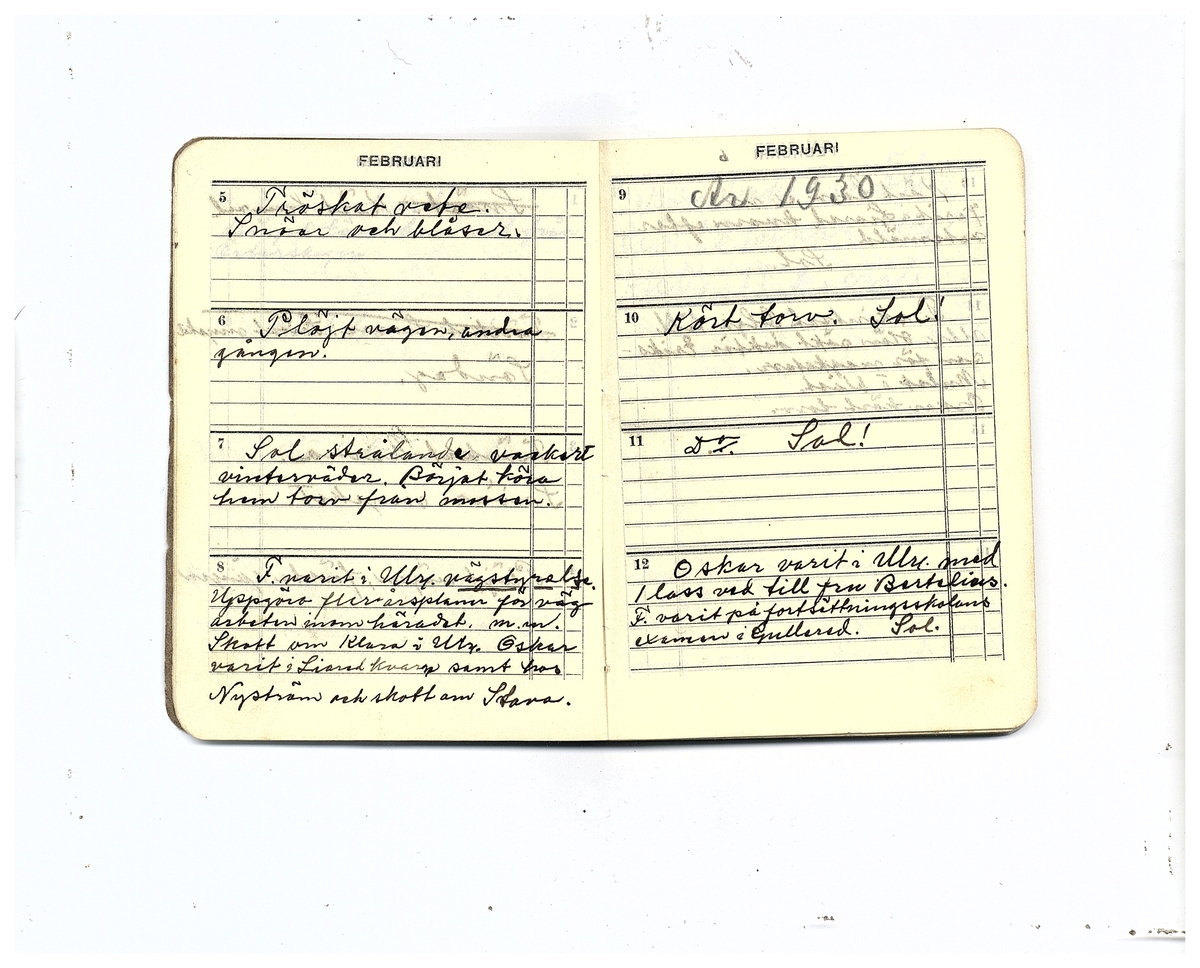 FEBRUARI
5 Tröskat vete.
Snöar och blåser.
6 Plöjt vägen, andra
gången.
7 Sol strålande vackert
vinterväder. Börjat köra
hem torv från mossen.
8 F. varit i Ulr. vägstyrelse.
Uppgöra flerårsplaner för väg
arbeten inom häradet. m.m.
Skott om Klara i Ulr. Oskar
varit i Liared kvarn samt hos
Nyström och skott om Stava.
FEBRUARI
9 År 1930
10 Kört torv. Sol!
11 Do. Sol!
12 Oskar varit i Ulr. med
1 lass ved till fru Bertelius.
F. varit på fortsättningsskolans
examen i Gullered. Sol.